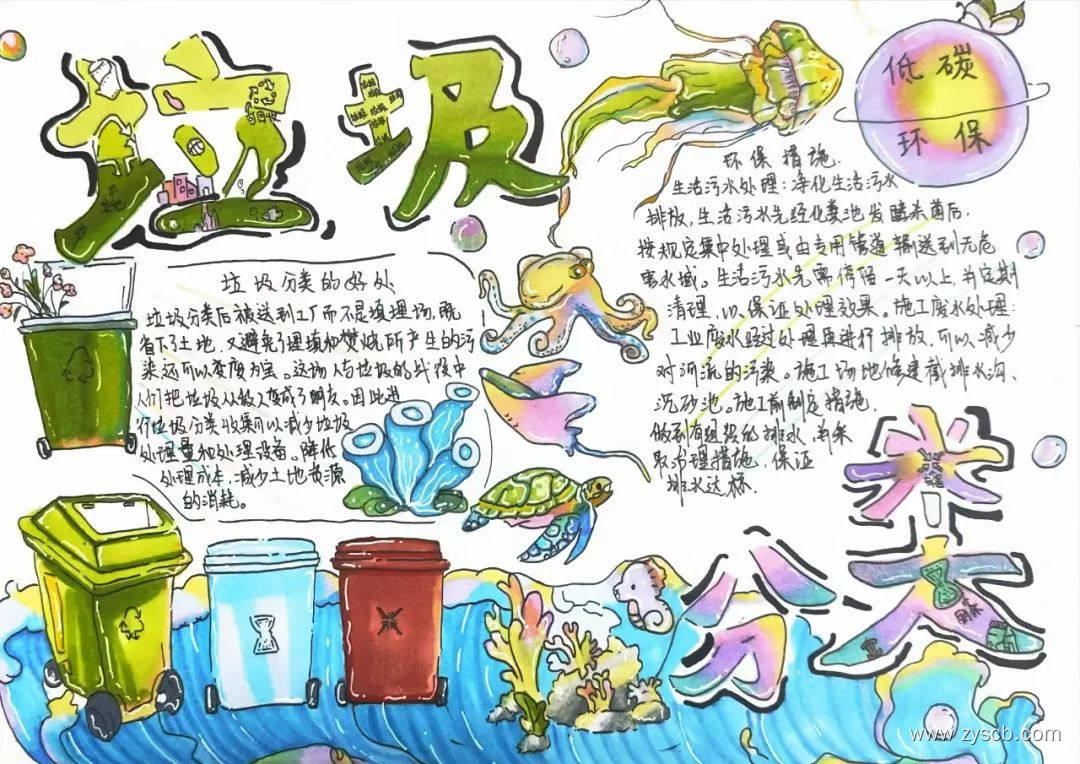 垃圾
低碳
环保
可回收
环保措施.
生活污水处理:净化生活污水
排放,生活污水先经化粪池发酵杀菌后,
按规定集中处理或由专用管道输送到无危
害水域。生活污水先需停留一天以上,并定期
清理,以保证处理效果。施工废水处理:
工业废水经过处理再进行排放,可以减少
对河流的污染。施工场地修建截排水沟、
沉砂池。施工前制定措施,
做到有组织的排水,并采
取治理措施,保证
排水达标.
垃圾分类的好处
垃圾分类后被送到工厂而不是填埋场,既
省下了土地,又避免了填埋和焚烧所产生的污
染,还可以变废为宝。这场人与垃圾的战役中
人们把垃圾从敌人变成了朋友。因此进
行垃圾分类收集可以减少垃圾
处理量和处理设备。降低
处理成本,减少土地资源
的消耗。
分类
www.zyscb.com